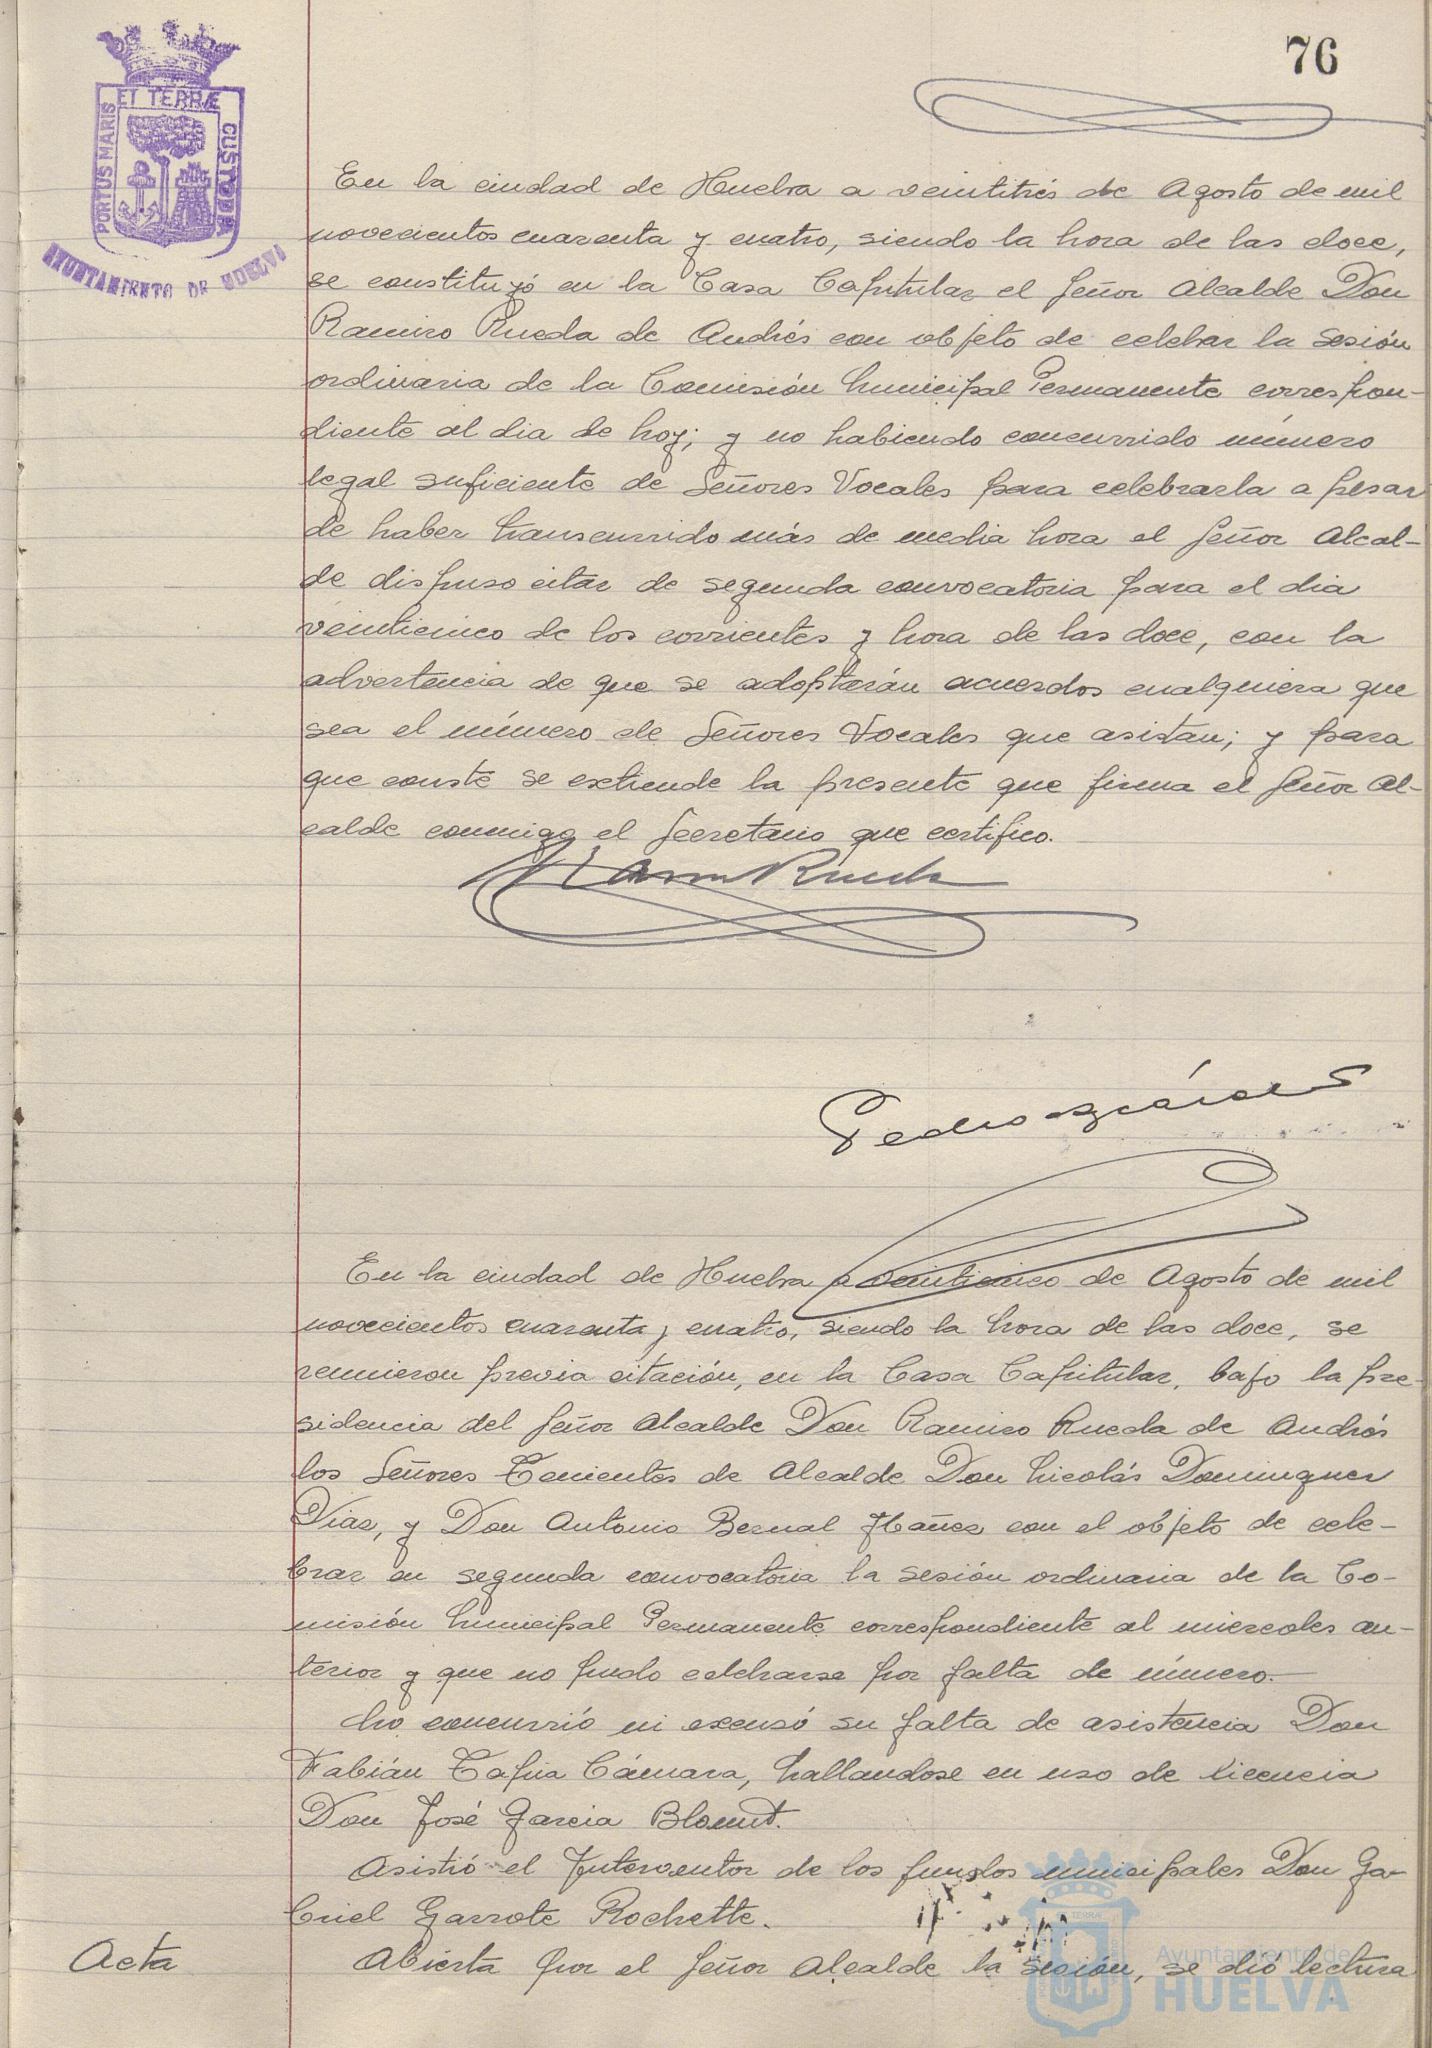 76
PORTUS MARIS ET TERRÆ CUSTODIA
AYUNTAMIENTO DE HUELVA
En la ciudad de Huelva a veintitrés de Agosto de mil
novecientos cuarenta y cuatro, siendo la hora de las doce,
se constituyó en la Casa Capitular el Señor Alcalde Don
Ramiro Rueda de Andrés con objeto de celebrar la sesión
ordinaria de la Comisión Municipal Permanente correspon-
diente al dia de hoy; y no habiendo concurrido número
legal suficiente de Señores Vocales para celebrarla a pesar
de haber transcurrido más de media hora el Señor Alcal-
de dispuso citar de segunda convocatoria para el dia
veinticinco de los corrientes y hora de las doce, con la
advertencia de que se adoptarán acuerdos cualquiera que
sea el número de Señores Vocales que asistan; y para
que conste se extiende la presente que firma el Señor Al-
calde conmigo el Secretario que certifico.
Ram Rueda
Pedro
En la ciudad de Huelva a veinticinco de Agosto de mil
novecientos cuarenta y cuatro, siendo la hora de las doce, se
reunieron previa citación, en la Casa Capitular, bajo la pre-
sidencia del Señor Alcalde Don Ramiro Rueda de Andrés
los Señores Tenientes de Alcalde Don Nicolás Dominguez
Diaz, y Don Antonio Bernal Ibañez con el objeto de cele-
brar en segunda convocatoria la sesión ordinaria de la Co-
misión Municipal Permanente correspondiente al miercoles an-
terior y que no pudo celebrarse por falta de número.-
No concurrió ni excusó su falta de asistencia Don
Fabián Tapia Cámara, hallandose en uso de licencia
Don José Garcia Blount.
Asistió el Interventor de los fundos municipales Don Ga-
briel Garrote Rochette.
Acta Abierta por el Señor Alcalde la sesión, se dió lectura
Ayuntamiento de
HUELVA